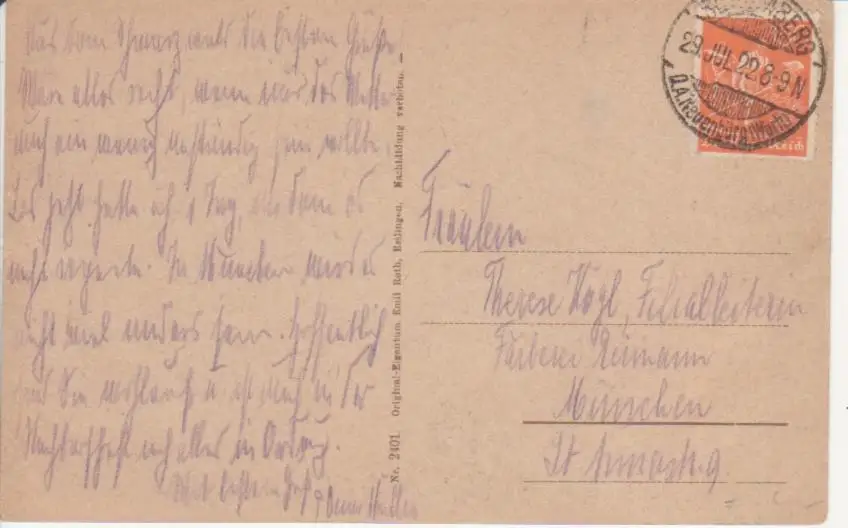 Aus dem Schwarzwald die besten Grüße.
Wäre alles recht, wenn nur das Wetter
auch ein wenig anständig sein wollte.
Bis jetzt hatte ich 1 Tag, an dem es
nicht regnete. In München wird es
nicht viel anders sein. Hoffentlich
sind Sie wohlauf u. ist auch in der
noch alles in Ordnung.
Mit besten
Nr. 2401. Original-Eigentum Emil Roth, Nachbildung verboten.
29 JUL 22 8-9N
O.A. Neuenbürg (Württ)
Fräulein
Therese Kögl, Filialleiterin
Färberei Reimann
München
St Annastr. 9